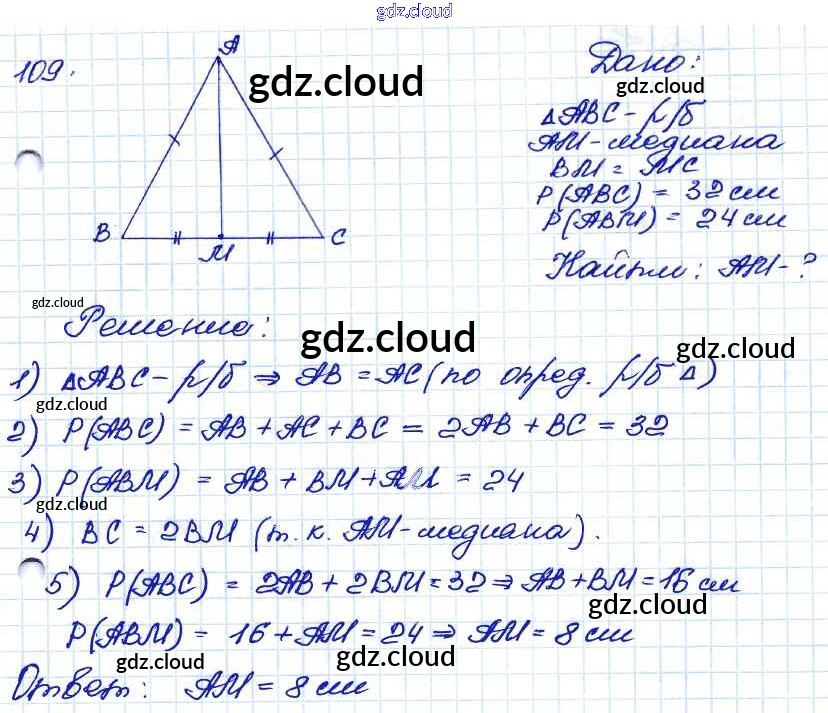 gdz.cloud
109.
A
gdz.cloud
Дано:
gdz.cloud
△ABC - р/б
AM - медиана
BM = MC
P(ABC) = 32 см
P(ABM) = 24 см
gdz.cloud
B
M
C
Найти: AM - ?
gdz.cloud
gdz.cloud
Решение:
gdz.cloud
gdz.cloud
1) △ABC - р/б ⇒ AB = AC (по опред. р/б △)
gdz.cloud
2) P(ABC) = AB + AC + BC = 2AB + BC = 32
3) P(ABM) = AB + BM + AM = 24
gdz.cloud
gdz.cloud
4) BC = 2BM (т.к. AM - медиана).
5) P(ABC) = 2AB + 2BM = 32 ⇒ AB + BM = 16 см
gdz.cloud
P(ABM) = 16 + AM = 24 ⇒ AM = 8 см
gdz.cloud
gdz.cloud
gdz.cloud
Ответ: AM = 8 см